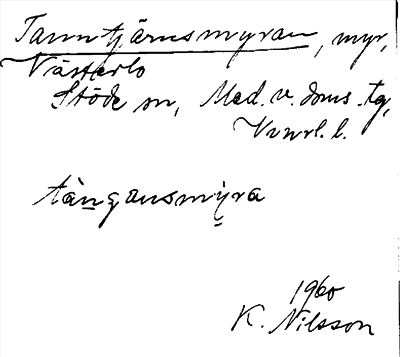 Tanntjärnsmyran, myr,
Västerlo
Stöde sn, Med. v. doms. tg,
Vnrl. l.
tàngansmỳra
1960
K. Nilsson